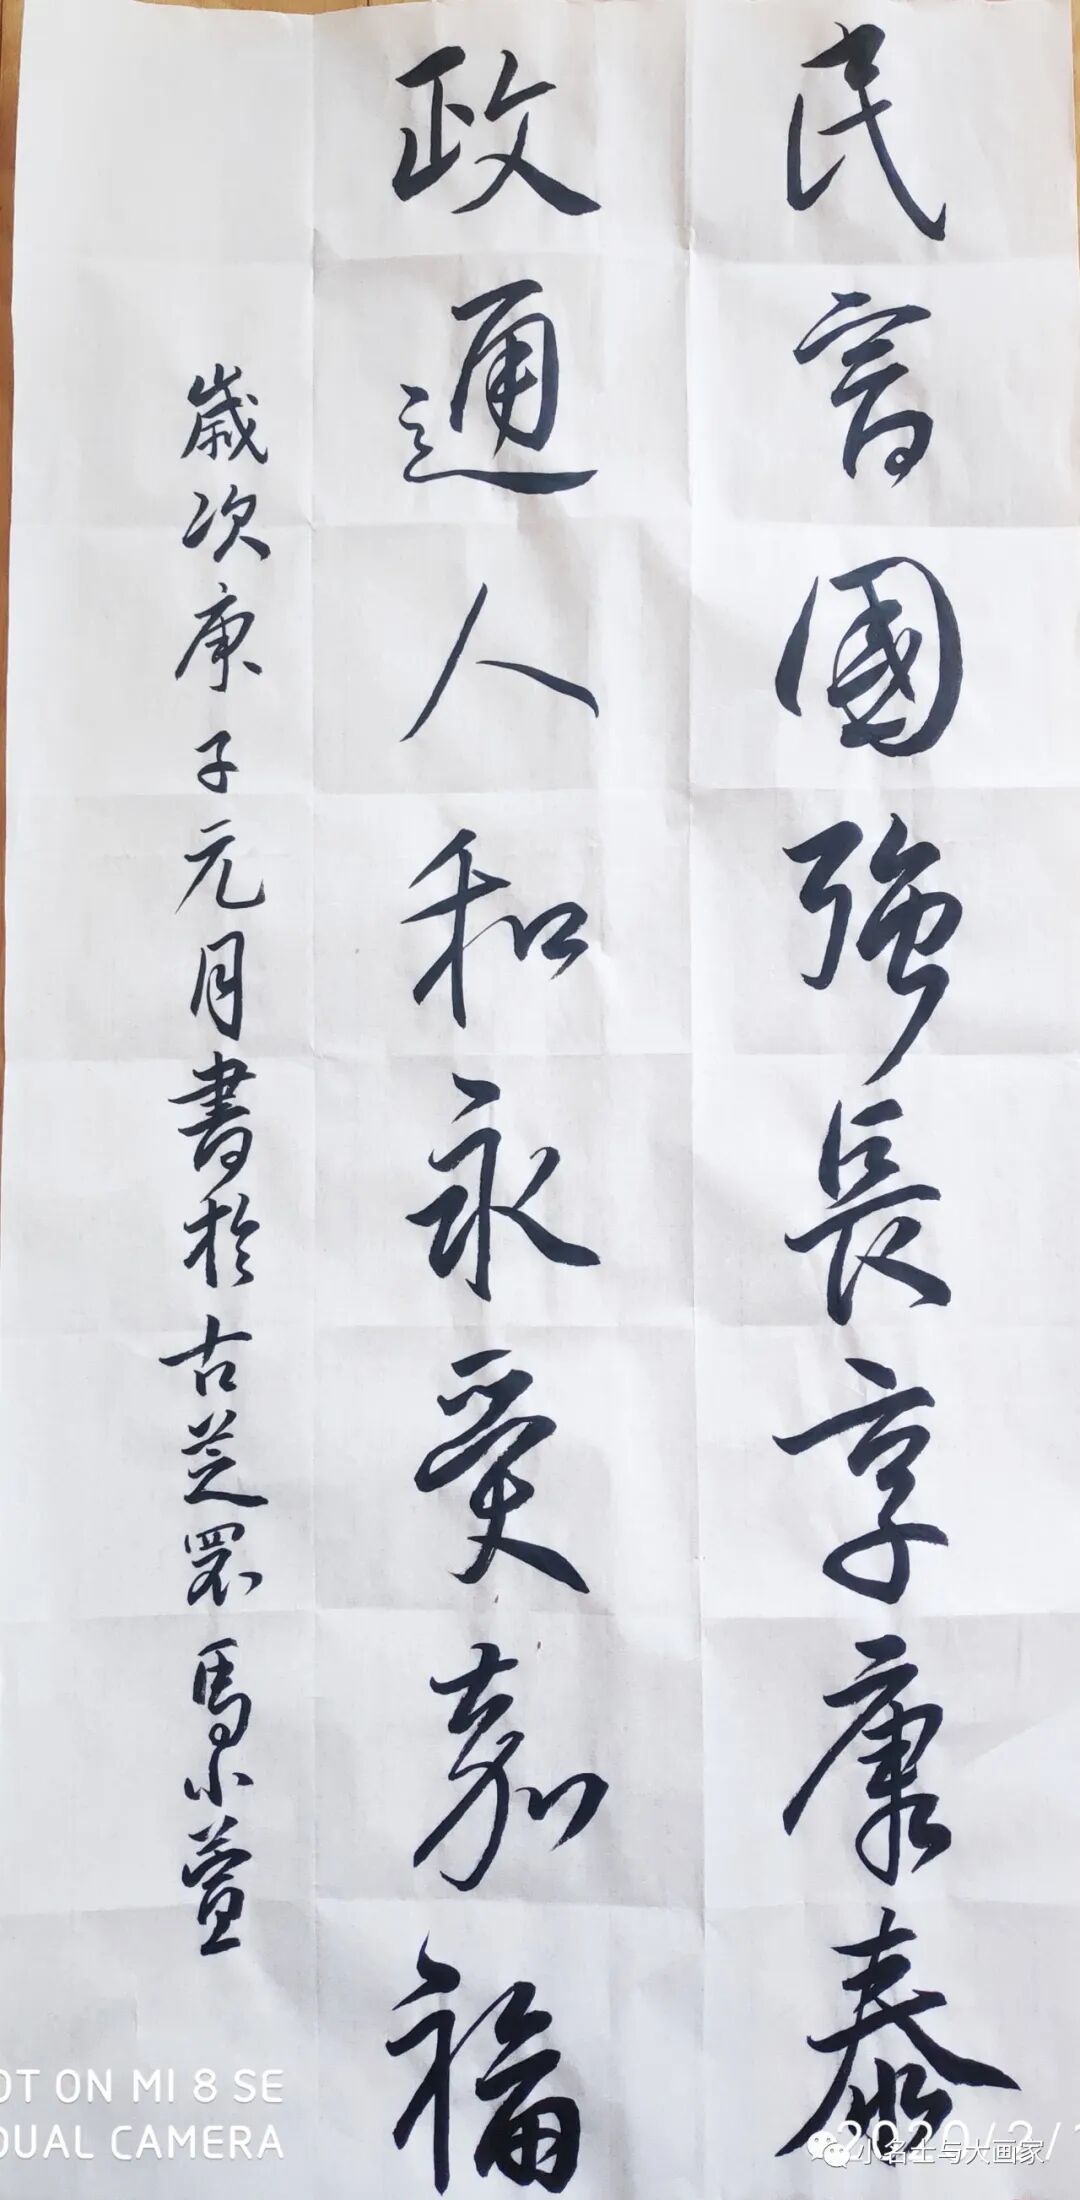 民富國強長享康泰
政通人和永受嘉福
歲次庚子元月書於古芝罘馬小萱
OT ON MI 8 SE
DUAL CAMERA
2020/2/1
小名士与大画家